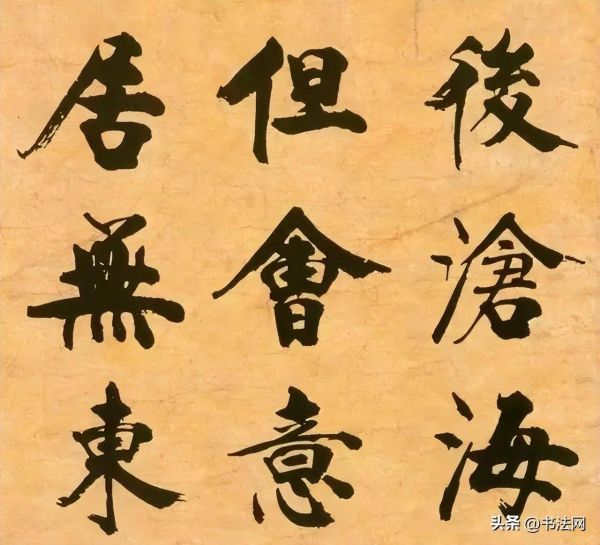 後滄海
但會意
居無東
头条 @书法网